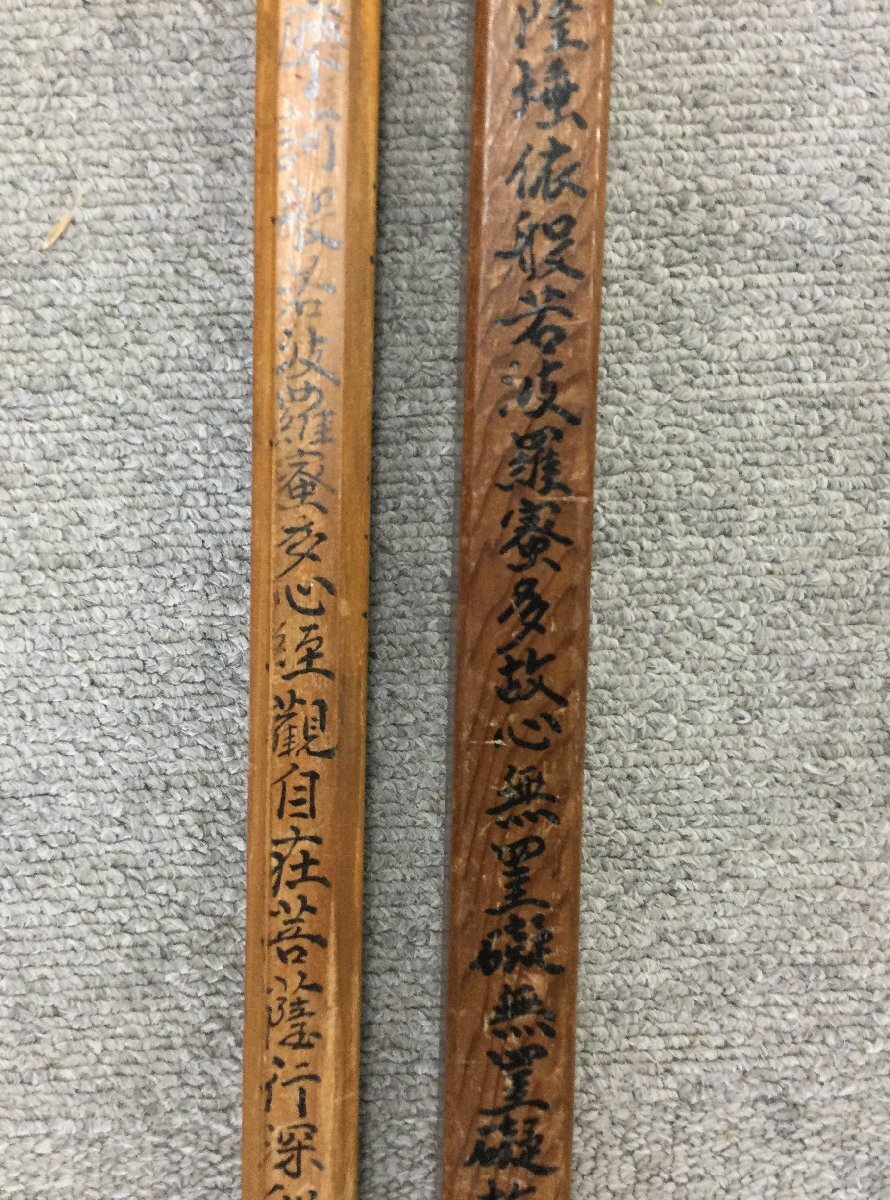 摩訶般若波羅蜜多心經觀自在菩薩行深般
薩埵依般若波羅蜜多故心無罣礙無罣礙故